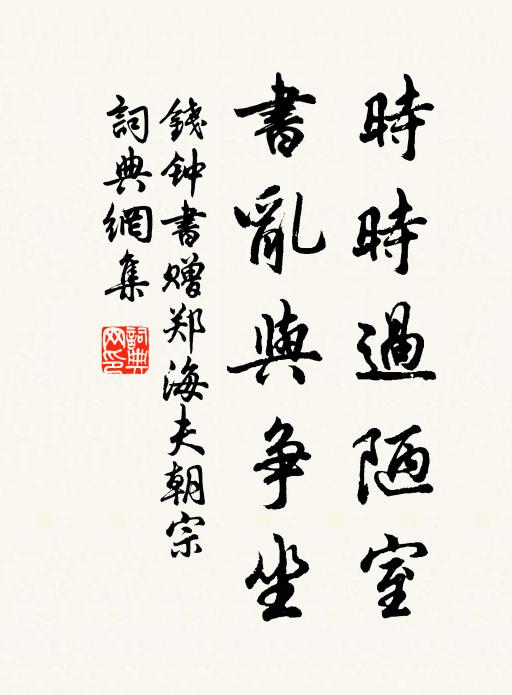 時時過陋室
書亂與争坐
錢钟書赠郑海夫朝宗
詞典網集
詞典网印